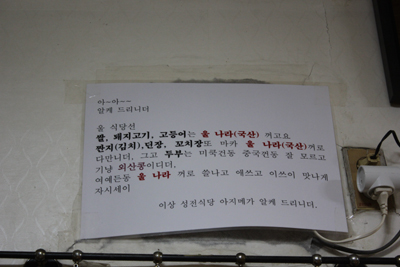 아~아~~
알케 드리니더
울 식당선
쌀, 돼지고기, 고등어는 울 나라(국산) 꺼고요
짠지(김치),딘장, 꼬치장또 마카 울 나라(국산)꺼로
다만니더, 그고 두부는 미국건동 중국건동 잘 모르고
기냥 외산콩이디더.
여에든동 울 나라 꺼로 쓸나고 애쓰고 이쓰이 맛나게
자시세이
이상 성전식당 아지메가 알케 드리니더.